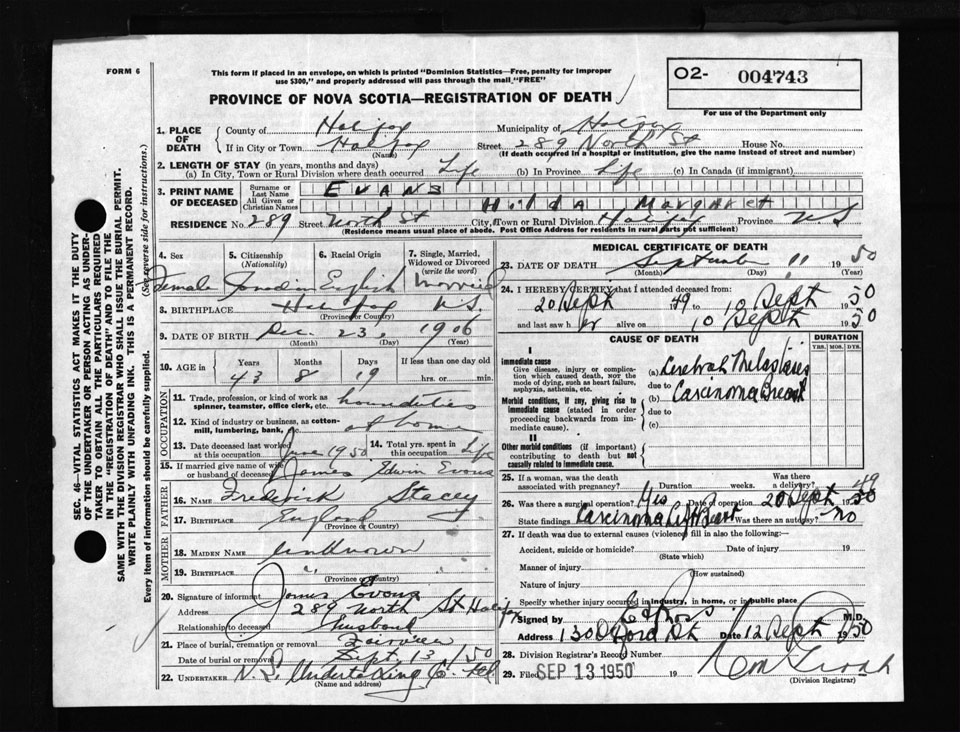 FORM 6
This form if placed in an envelope, on which is printed "Dominion Statistics—Free, penalty for improper
use $300," and properly addressed will pass through the mail "FREE"
O2- 004743
For use of the Department only
PROVINCE OF NOVA SCOTIA—REGISTRATION OF DEATH
1. PLACE OF DEATH
County of Halifax Municipality of Halifax
If in City or Town Halifax (Name) Street 289 North St House No.
(If death occurred in a hospital or institution, give the name instead of street and number)
2. LENGTH OF STAY (in years, months and days)
(a) In City, Town or Rural Division where death occurred Life (b) In Province Life (c) In Canada (if immigrant)
3. PRINT NAME OF DECEASED
Surname or Last Name EVANS
All Given or Christian Names Hilda Margaret
RESIDENCE No. 289 Street North St City, Town or Rural Division Halifax Province N.S
(Residence means usual place of abode. Post Office Address for residents in rural parts not sufficient)
4. Sex
Female
5. Citizenship (Nationality)
Canadian
6. Racial Origin
English
7. Single, Married, Widowed or Divorced (write the word)
Married
8. BIRTHPLACE Halifax N.S.
(Province or Country)
9. DATE OF BIRTH Dec. 23, 1906
(Month) (Day) (Year)
10. AGE in Years Months Days If less than one day old
43 8 19 hrs. or min.
OCCUPATION
11. Trade, profession, or kind of work as spinner, teamster, office clerk, etc. house duties
12. Kind of industry or business, as cotton-mill, lumbering, bank, etc. at home
13. Date deceased last worked at this occupation June 1950
14. Total yrs. spent in this occupation Life
15. If married give name of wife or husband of deceased James Edwin Evans
FATHER
16. NAME Frederick Stacey
17. BIRTHPLACE England
(Province or Country)
MOTHER
18. MAIDEN NAME Unknown
19. BIRTHPLACE " "
(Province or Country)
20. Signature of informant James Evans
Address 289 North St Halifax
Relationship to deceased husband
21. Place of burial, cremation or removal Fairview
Date of burial or removal Sept 13 1950
22. UNDERTAKER N.S. Undertaking Co. Ltd
(Name and address)
MEDICAL CERTIFICATE OF DEATH
23. DATE OF DEATH September 11 1950
(Month) (Day) (Year)
24. I HEREBY CERTIFY that I attended deceased from:
20 Sept 1949 to 10 Sept 1950
and last saw her alive on 10 Sept 1950
CAUSE OF DEATH
DURATION
YRS. MOS. DYS.
I
Immediate cause
Give disease, injury or complication which caused death, NOT the mode of dying, such as heart failure, asphyxia, asthenia, etc.
(a) Cerebral
due to Carcinoma Breast
Morbid conditions, if any, giving rise to immediate cause (stated in order proceeding backwards from immediate cause).
(b)
due to
(c)
II
Other morbid conditions (if important) contributing to death but not causally related to immediate cause.
25. If a woman, was the death associated with pregnancy? Duration weeks. Was there a delivery?
26. Was there a surgical operation? Yes Date of operation 20 Sept 1949
State findings Carcinoma Left Breast Was there an autopsy? no
27. If death was due to external causes (violence) fill in also the following:—
Accident, suicide or homicide? Date of injury 19
(State which)
Manner of injury
(How sustained)
Nature of injury
Specify whether injury occurred in industry, in home, or in public place
Signed by M.D.
Address 130 Oxford St. Date 12 Sept 1950
28. Division Registrar's Record Number
29. Filed SEP 13 1950 19
(Division Registrar)
SEC. 46—VITAL STATISTICS ACT MAKES IT THE DUTY
OF THE UNDERTAKER OR PERSON ACTING AS UNDER-
TAKER TO OBTAIN ALL THE PARTICULARS REQUIRED
IN THE "REGISTRATION OF DEATH" AND TO FILE THE
SAME WITH THE DIVISION REGISTRAR WHO SHALL ISSUE THE BURIAL PERMIT.
WRITE PLAINLY WITH UNFADING INK. THIS IS A PERMANENT RECORD.
Every item of information should be carefully supplied. (See reverse side for instructions.)